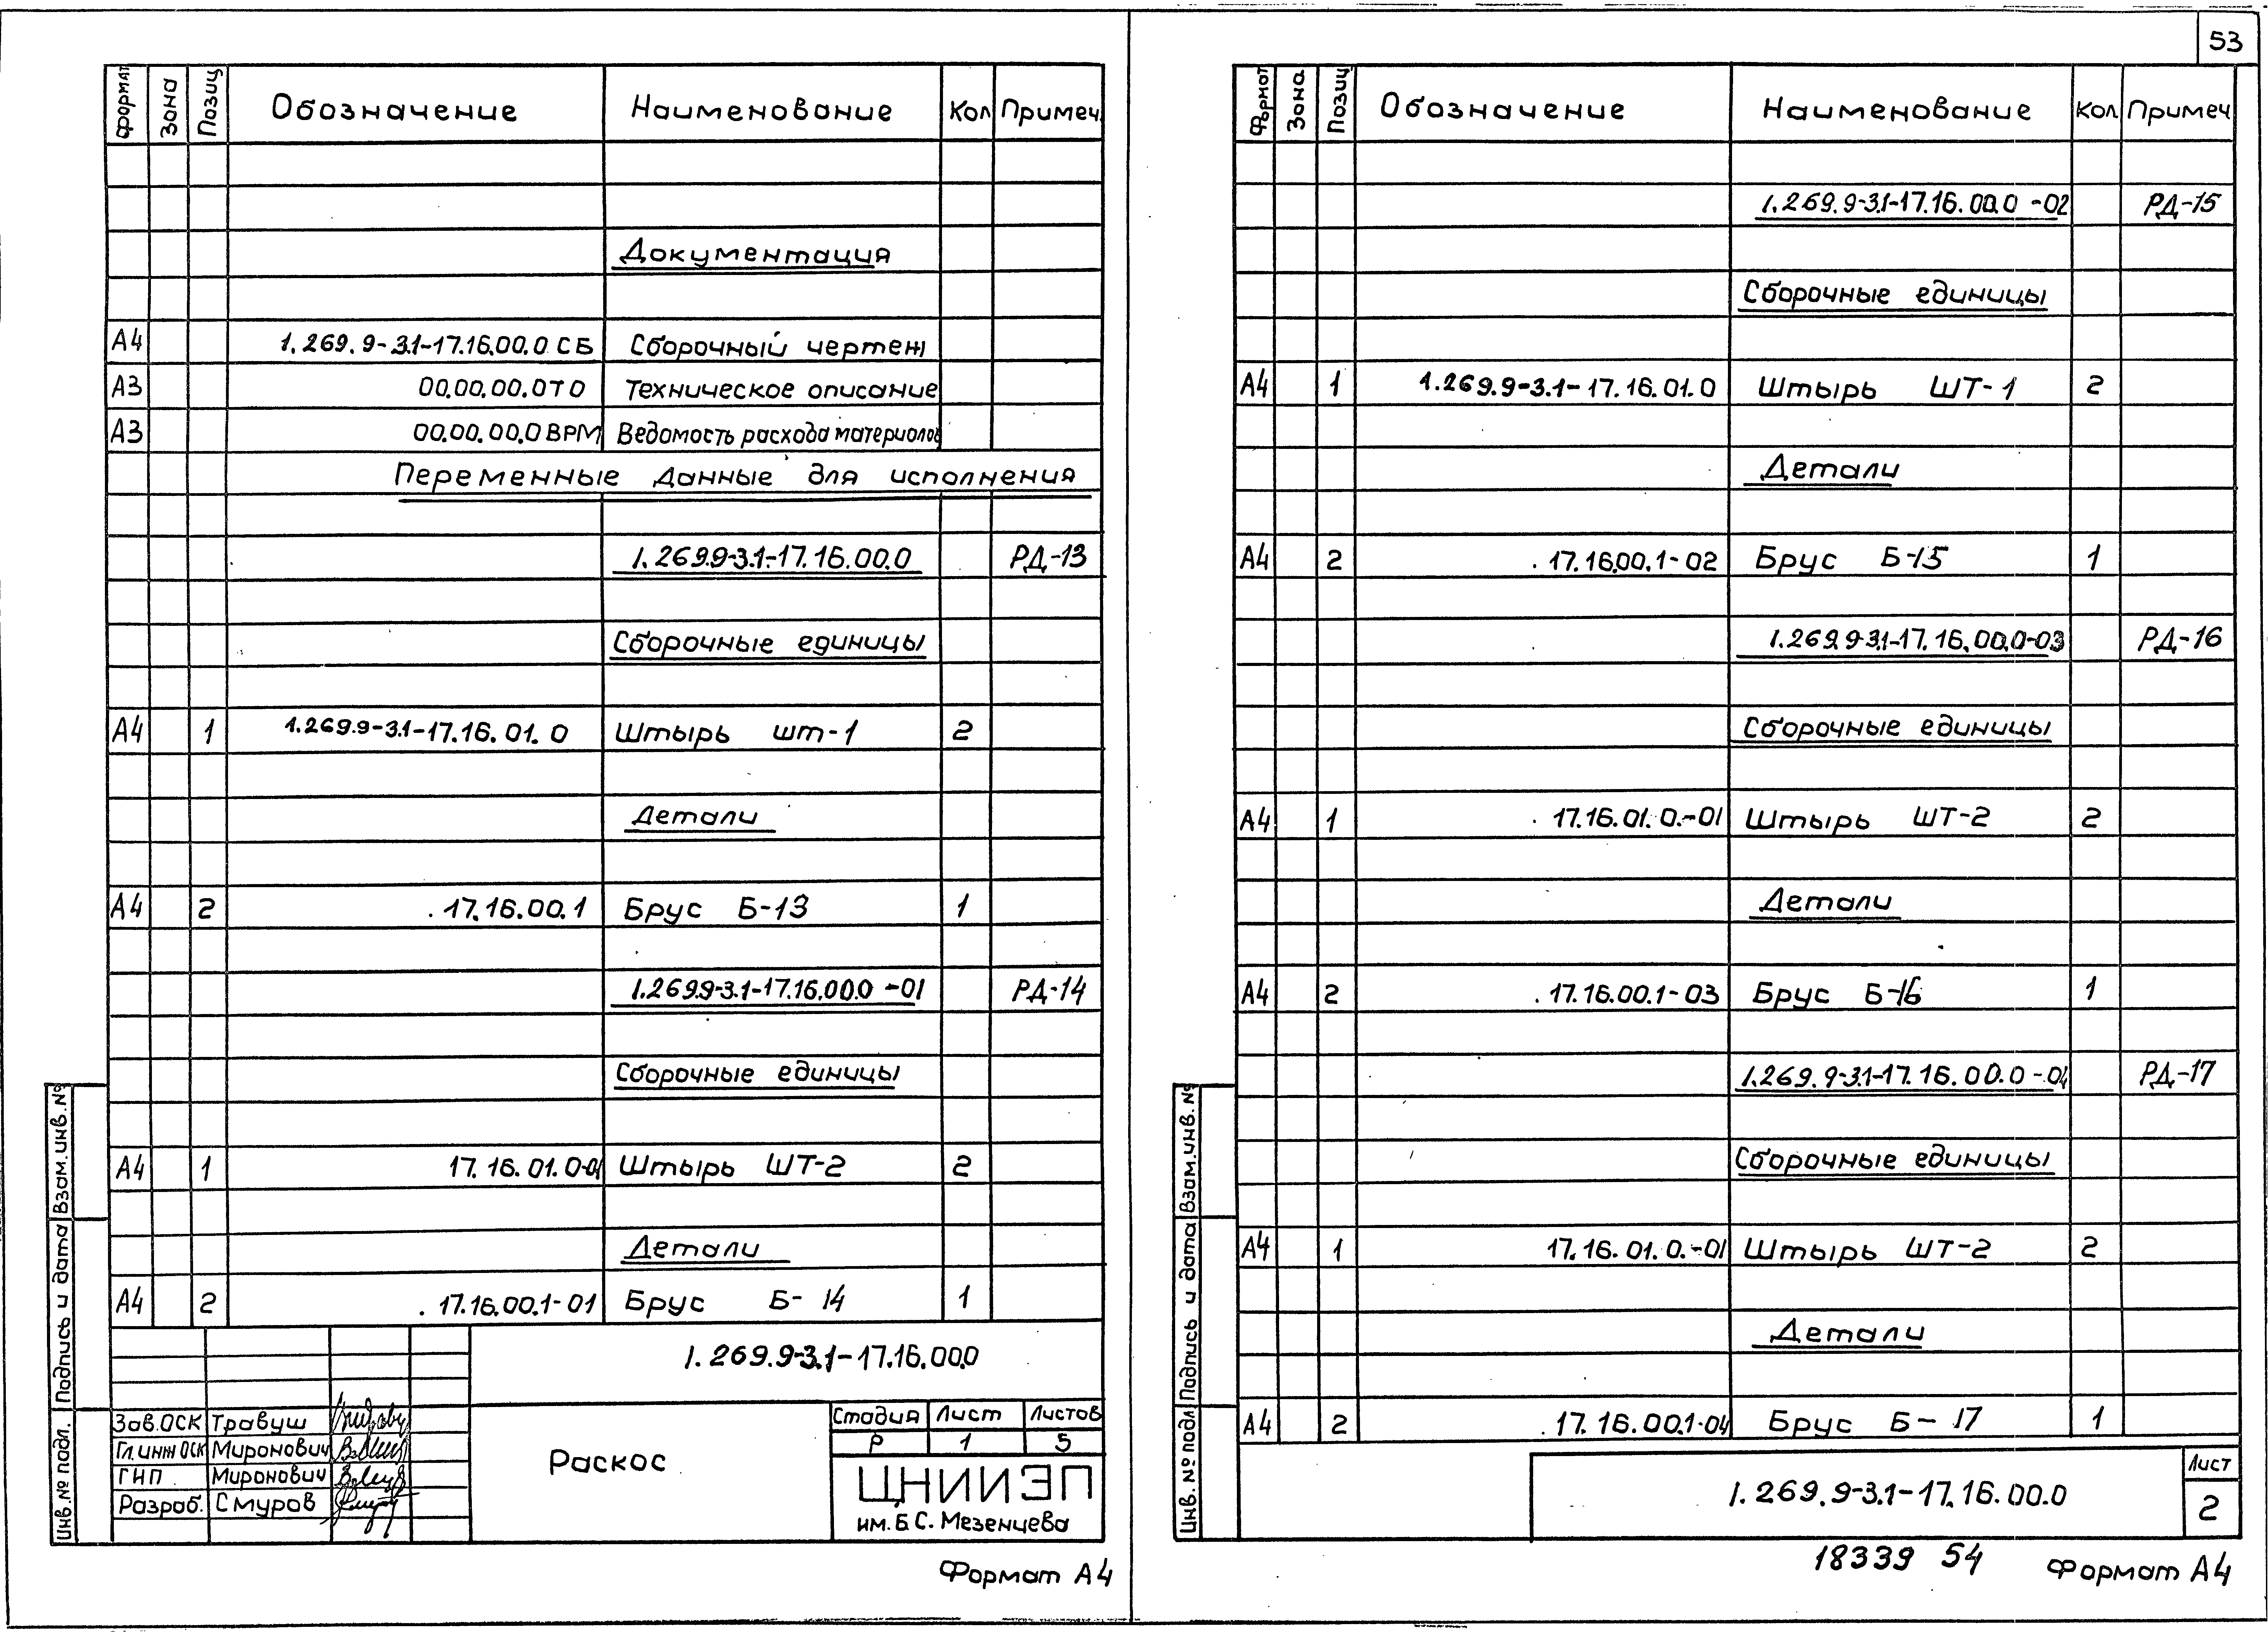 53
Формат Зона Позиц Обозначение Наименование Кол Примеч.
Документация
А4 1.269.9-3.1-17.16.00.0 СБ Сборочный чертеж
А3 00.00.00.0ТО Техническое описание
А3 00.00.00.0 ВРМ Ведомость расхода материалов
Переменные данные для исполнения
1.269.9-3.1-17.16.00.0 РД-13
Сборочные единицы
А4 1 1.269.9-3.1-17.16.01.0 Штырь шт-1 2
Детали
А4 2 .17.16.00.1 Брус Б-13 1
1.269.9-3.1-17.16.00.0 -01 РД-14
Сборочные единицы
А4 1 17.16.01.0-01 Штырь ШТ-2 2
Детали
А4 2 .17.16.00.1-01 Брус Б-14 1
1.269.9-3.1-17.16.00.0
Зав.ОСК Травуш
Гл.инж ОСК Миронович
ГНП Миронович
Разраб. Смуров
Раскос
Стадия Лист Листов
Р 1 5
ЦНИИЭП
им. Б.С. Мезенцева
Инв.№ подл. Подпись и дата Взам.инв.№
Формат А4
Формат Зона Позиц Обозначение Наименование Кол. Примеч
1.269.9-3.1-17.16.00.0 -02 РД-15
Сборочные единицы
А4 1 1.269.9-3.1-17.16.01.0 Штырь ШТ-1 2
Детали
А4 2 .17.16.00.1-02 Брус Б-15 1
1.269.9-3.1-17.16.00.0-03 РД-16
Сборочные единицы
А4 1 .17.16.01.0.-01 Штырь ШТ-2 2
Детали
А4 2 .17.16.00.1-03 Брус Б-16 1
1.269.9-3.1-17.16.00.0-04 РД-17
Сборочные единицы
А4 1 17.16.01.0.-01 Штырь ШТ-2 2
Детали
А4 2 .17.16.00.1-04 Брус Б-17 1
1.269.9-3.1-17.16.00.0
Лист
2
Инв.№ подл Подпись и дата Взам.инв.№
18339 54
Формат А4